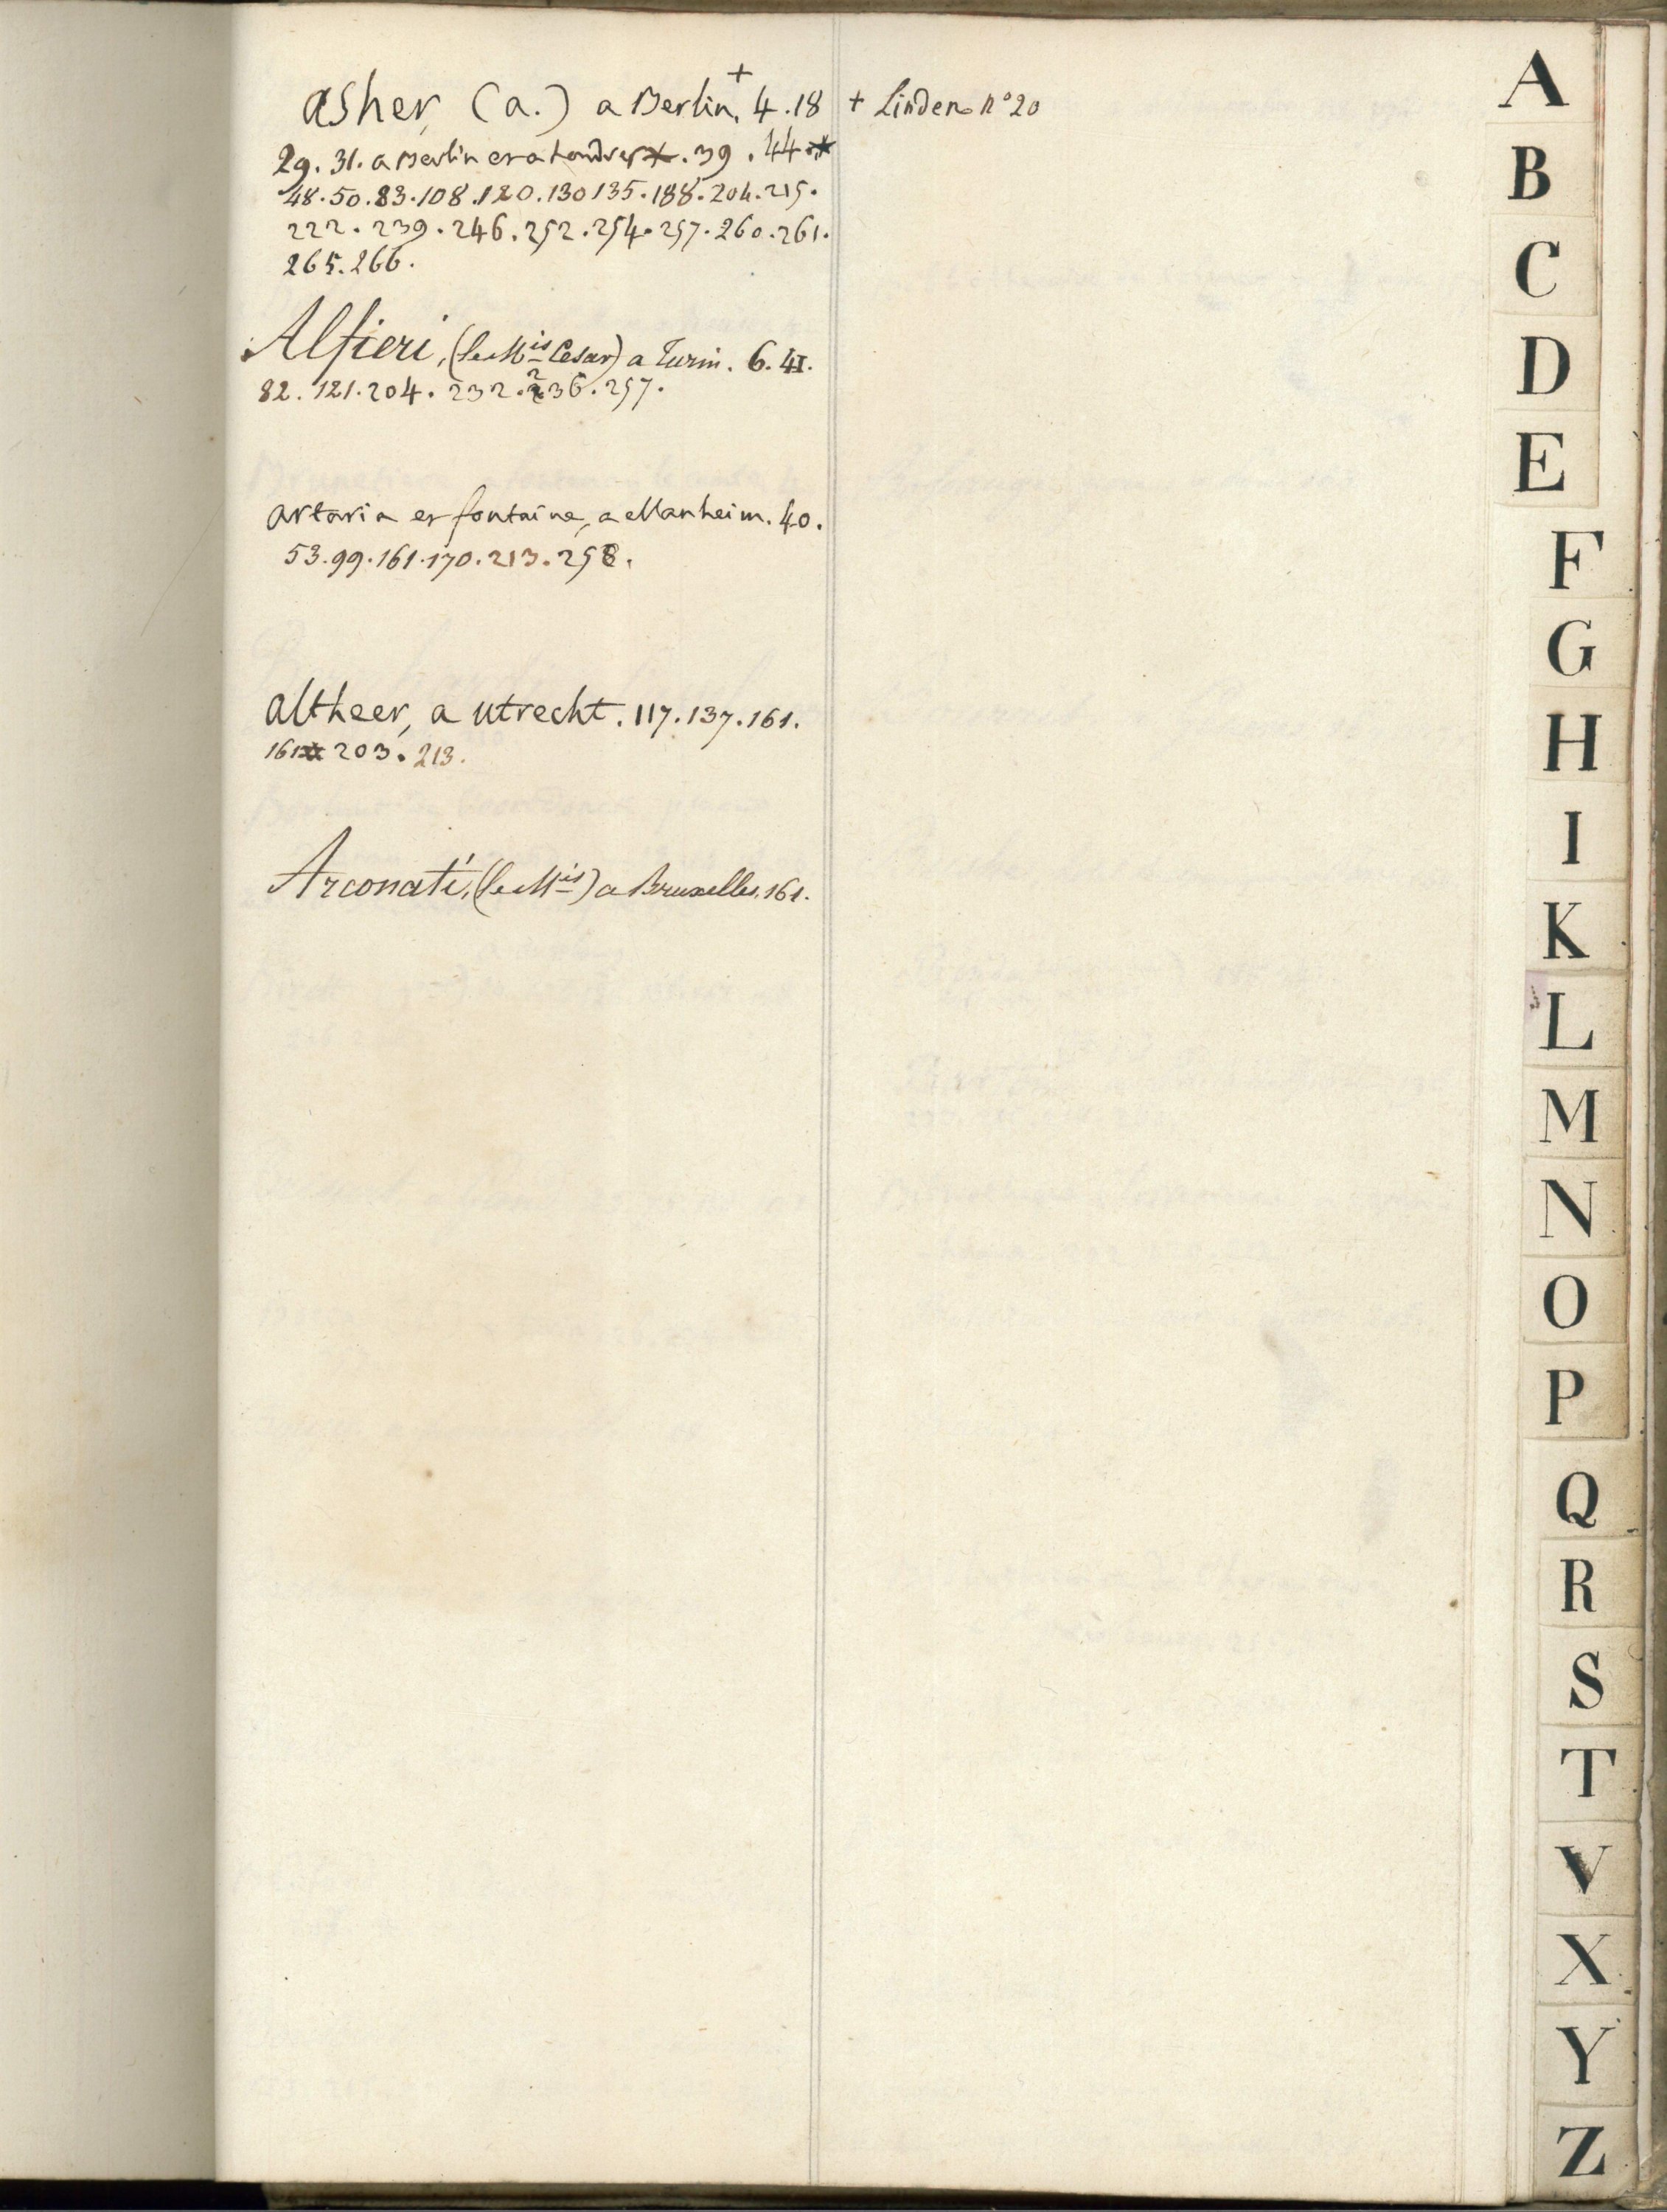 asher, (a.) a Berlin,+ 4.18
+ Linden n° 20
29. 31. a Berlin et a Londres. 39. 44.
48.50.83.108.120.130 135.188.204.215.
222. 239. 246. 252. 254. 257. 260. 261.
265. 266.
Alfieri, (le Mis Cesar) a Turin. 6. 41.
82. 121. 204. 232. 236. 257.
artaria et fontaine, a Manheim. 40.
53.99.161.170.213.258.
altheer, a utrecht. 117.137.161.
161 203. 213.
Arconati, (le Mis) a Bruxelles. 161.
A
B
C
D
E
F
G
H
I
K
L
M
N
O
P
Q
R
S
T
V
X
Y
Z